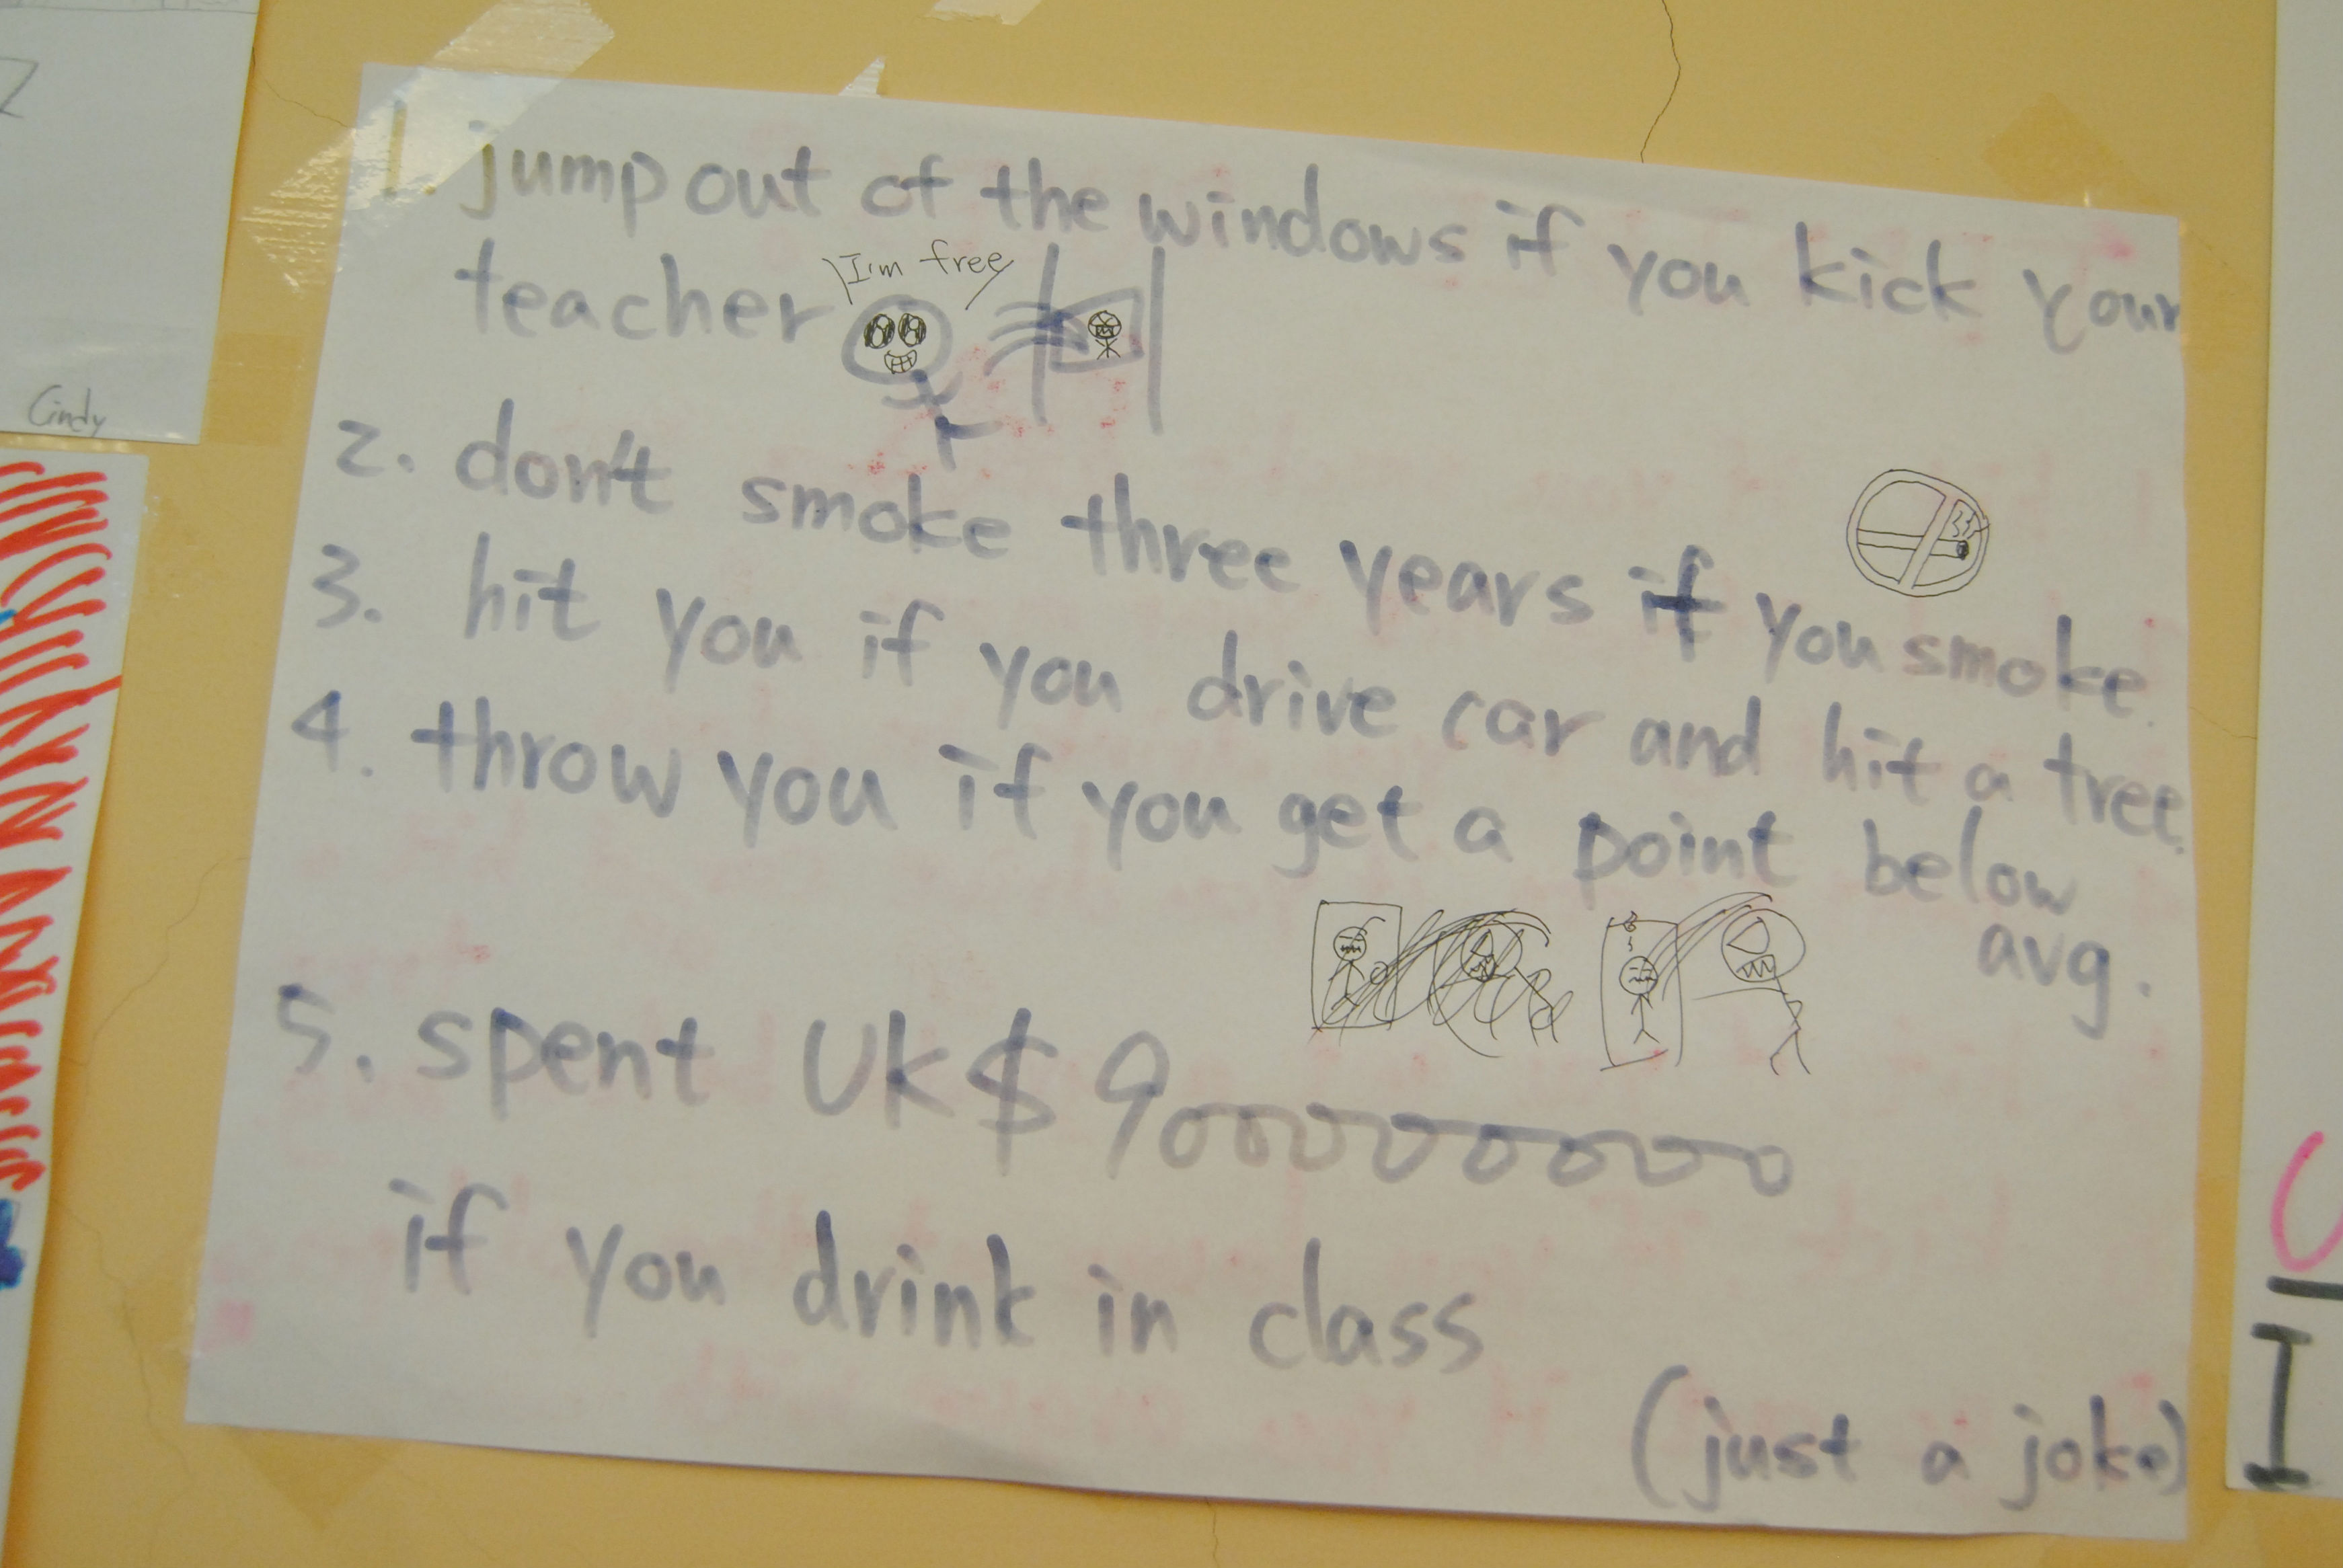 1. jump out of the windows if you kick your
teacher
I'm free
2. don't smoke three years if you smoke.
3. hit you if you drive car and hit a tree.
4. throw you if you get a point below
avg.
5. spent UK$9000000000
if you drink in class
(just a joke)
Cindy
I